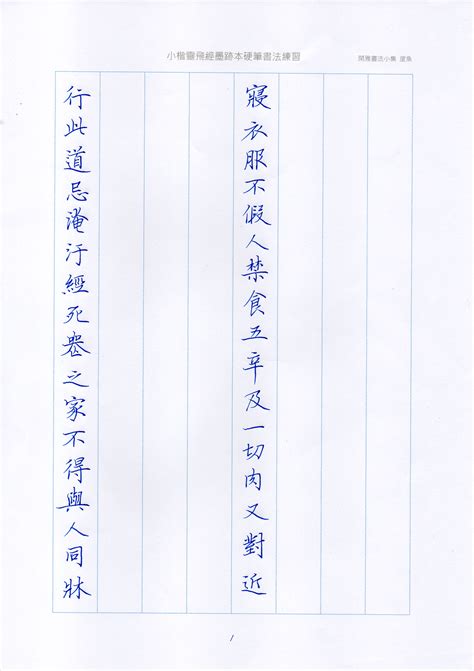 小楷靈飛經墨跡本硬筆書法練習
行此道忌淹汙經死喪之家不得與人同牀
寢衣服不假人禁食五辛及一切肉又對近
1